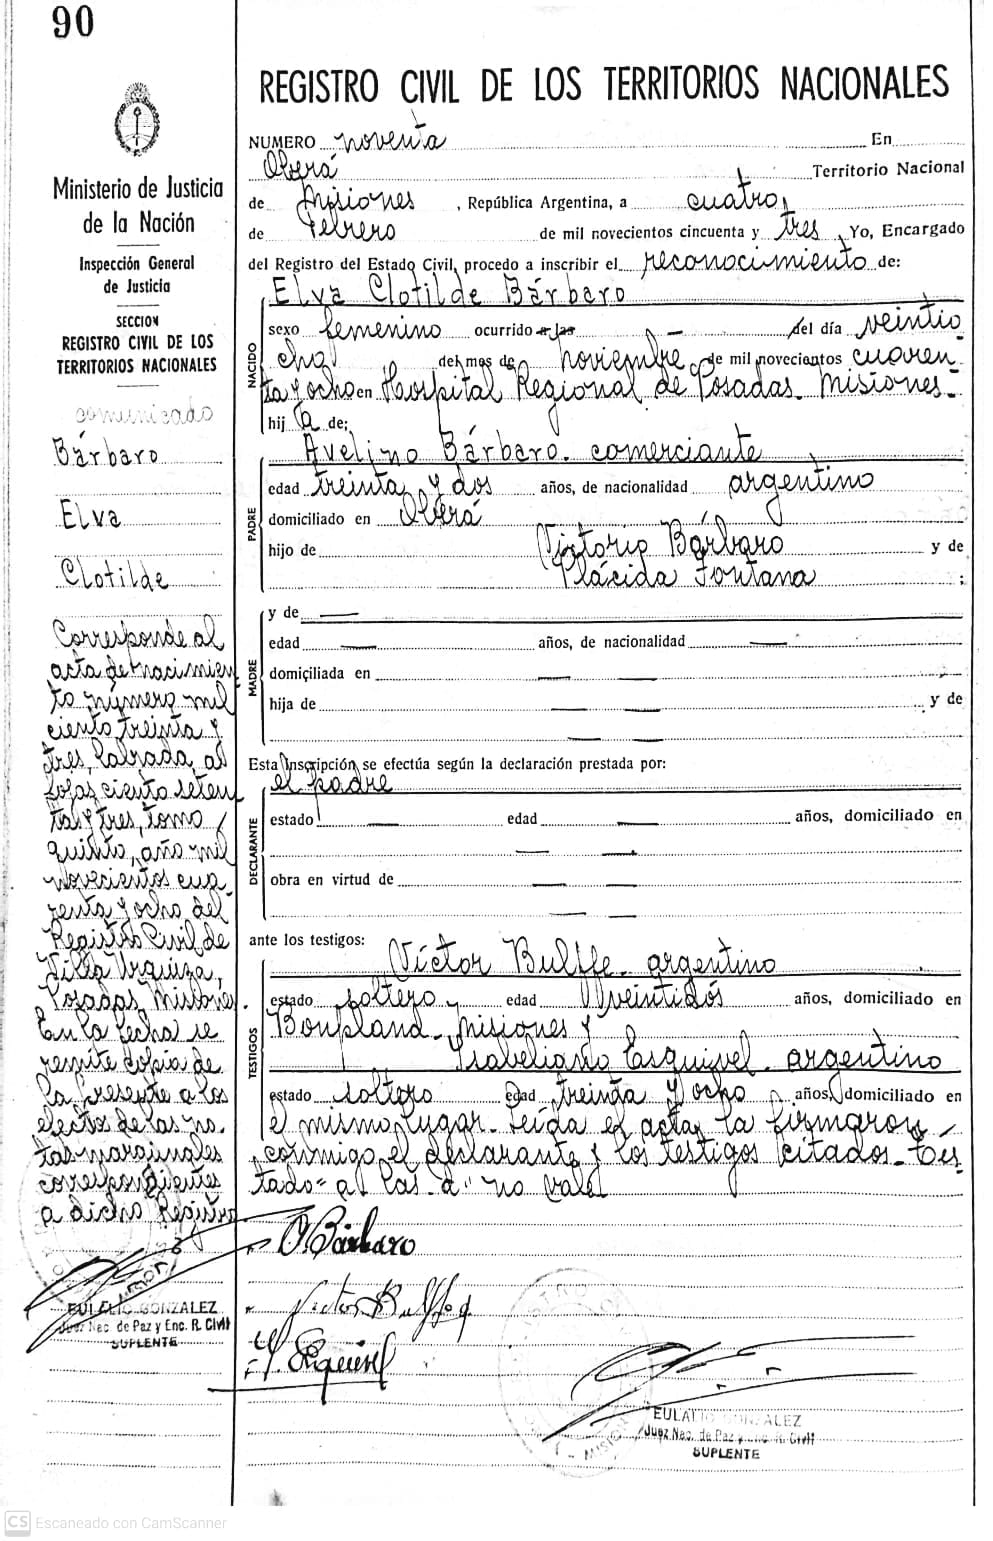 90
REGISTRO CIVIL DE LOS TERRITORIOS NACIONALES
NUMERO noventa En
Oberá Territorio Nacional
de Misiones , República Argentina, a cuatro,
de Febrero de mil novecientos cincuenta y tres, Yo, Encargado
del Registro del Estado Civil, procedo a inscribir el reconocimiento de:
NACIDO
Elva Clotilde Bárbaro
sexo femenino ocurrido a las — del día veintio
cho del mes de noviembre de mil novecientos cuaren
ta y ocho en Hospital Regional de Posadas. Misiones-
hij a de;
PADRE
Avelino Bárbaro. comerciante
edad treinta y dos años, de nacionalidad argentino
domiciliado en Oberá
hijo de Victorio Bárbaro y de
Plácida Fontana ;
MADRE
y de —
edad — años, de nacionalidad —
domiciliada en — —
hija de — — y de
— —
Esta Inscripción se efectúa según la declaración prestada por:
DECLARANTE
el padre
estado — edad — años, domiciliado en
— —
obra en virtud de — —
— —
ante los testigos:
TESTIGOS
Víctor Bulffe. argentino
estado soltero edad veintidós años, domiciliado en
Bonpland. Misiones y
Isabeliano Esquivel. argentino
estado soltero edad treinta y ocho años, domiciliado en
el mismo lugar. Leída el acta, la firmaron
conmigo, el declarante y los testigos citados. Tes
tado "a las a" no vale
A. Bárbaro
Victor Bulffe
Y. Esquivel
EULALIO GONZALEZ
Juez Nac. de Paz y Enc. R. Civil
SUPLENTE
Ministerio de Justicia
de la Nación
Inspección General
de Justicia
SECCION
REGISTRO CIVIL DE LOS
TERRITORIOS NACIONALES
comunicado
Bárbaro
Elva
Clotilde
Corresponde al
acta de nacimien
to número mil
ciento treinta y
tres, labrada, al
folas ciento seten
ta y tres, tomo
quinto, año mil
novecientos cua
renta y ocho del
Registro Civil de
Villa Urquiza,
Posadas, Misiones.
En la fecha se
remite copia de
la presente a los
efectos de las no
tas marginales
correspondientes
a dicho Registro
EULALIO GONZALEZ
Juez Nac. de Paz y Enc. R. Civil
SUPLENTE
CS Escaneado con CamScanner